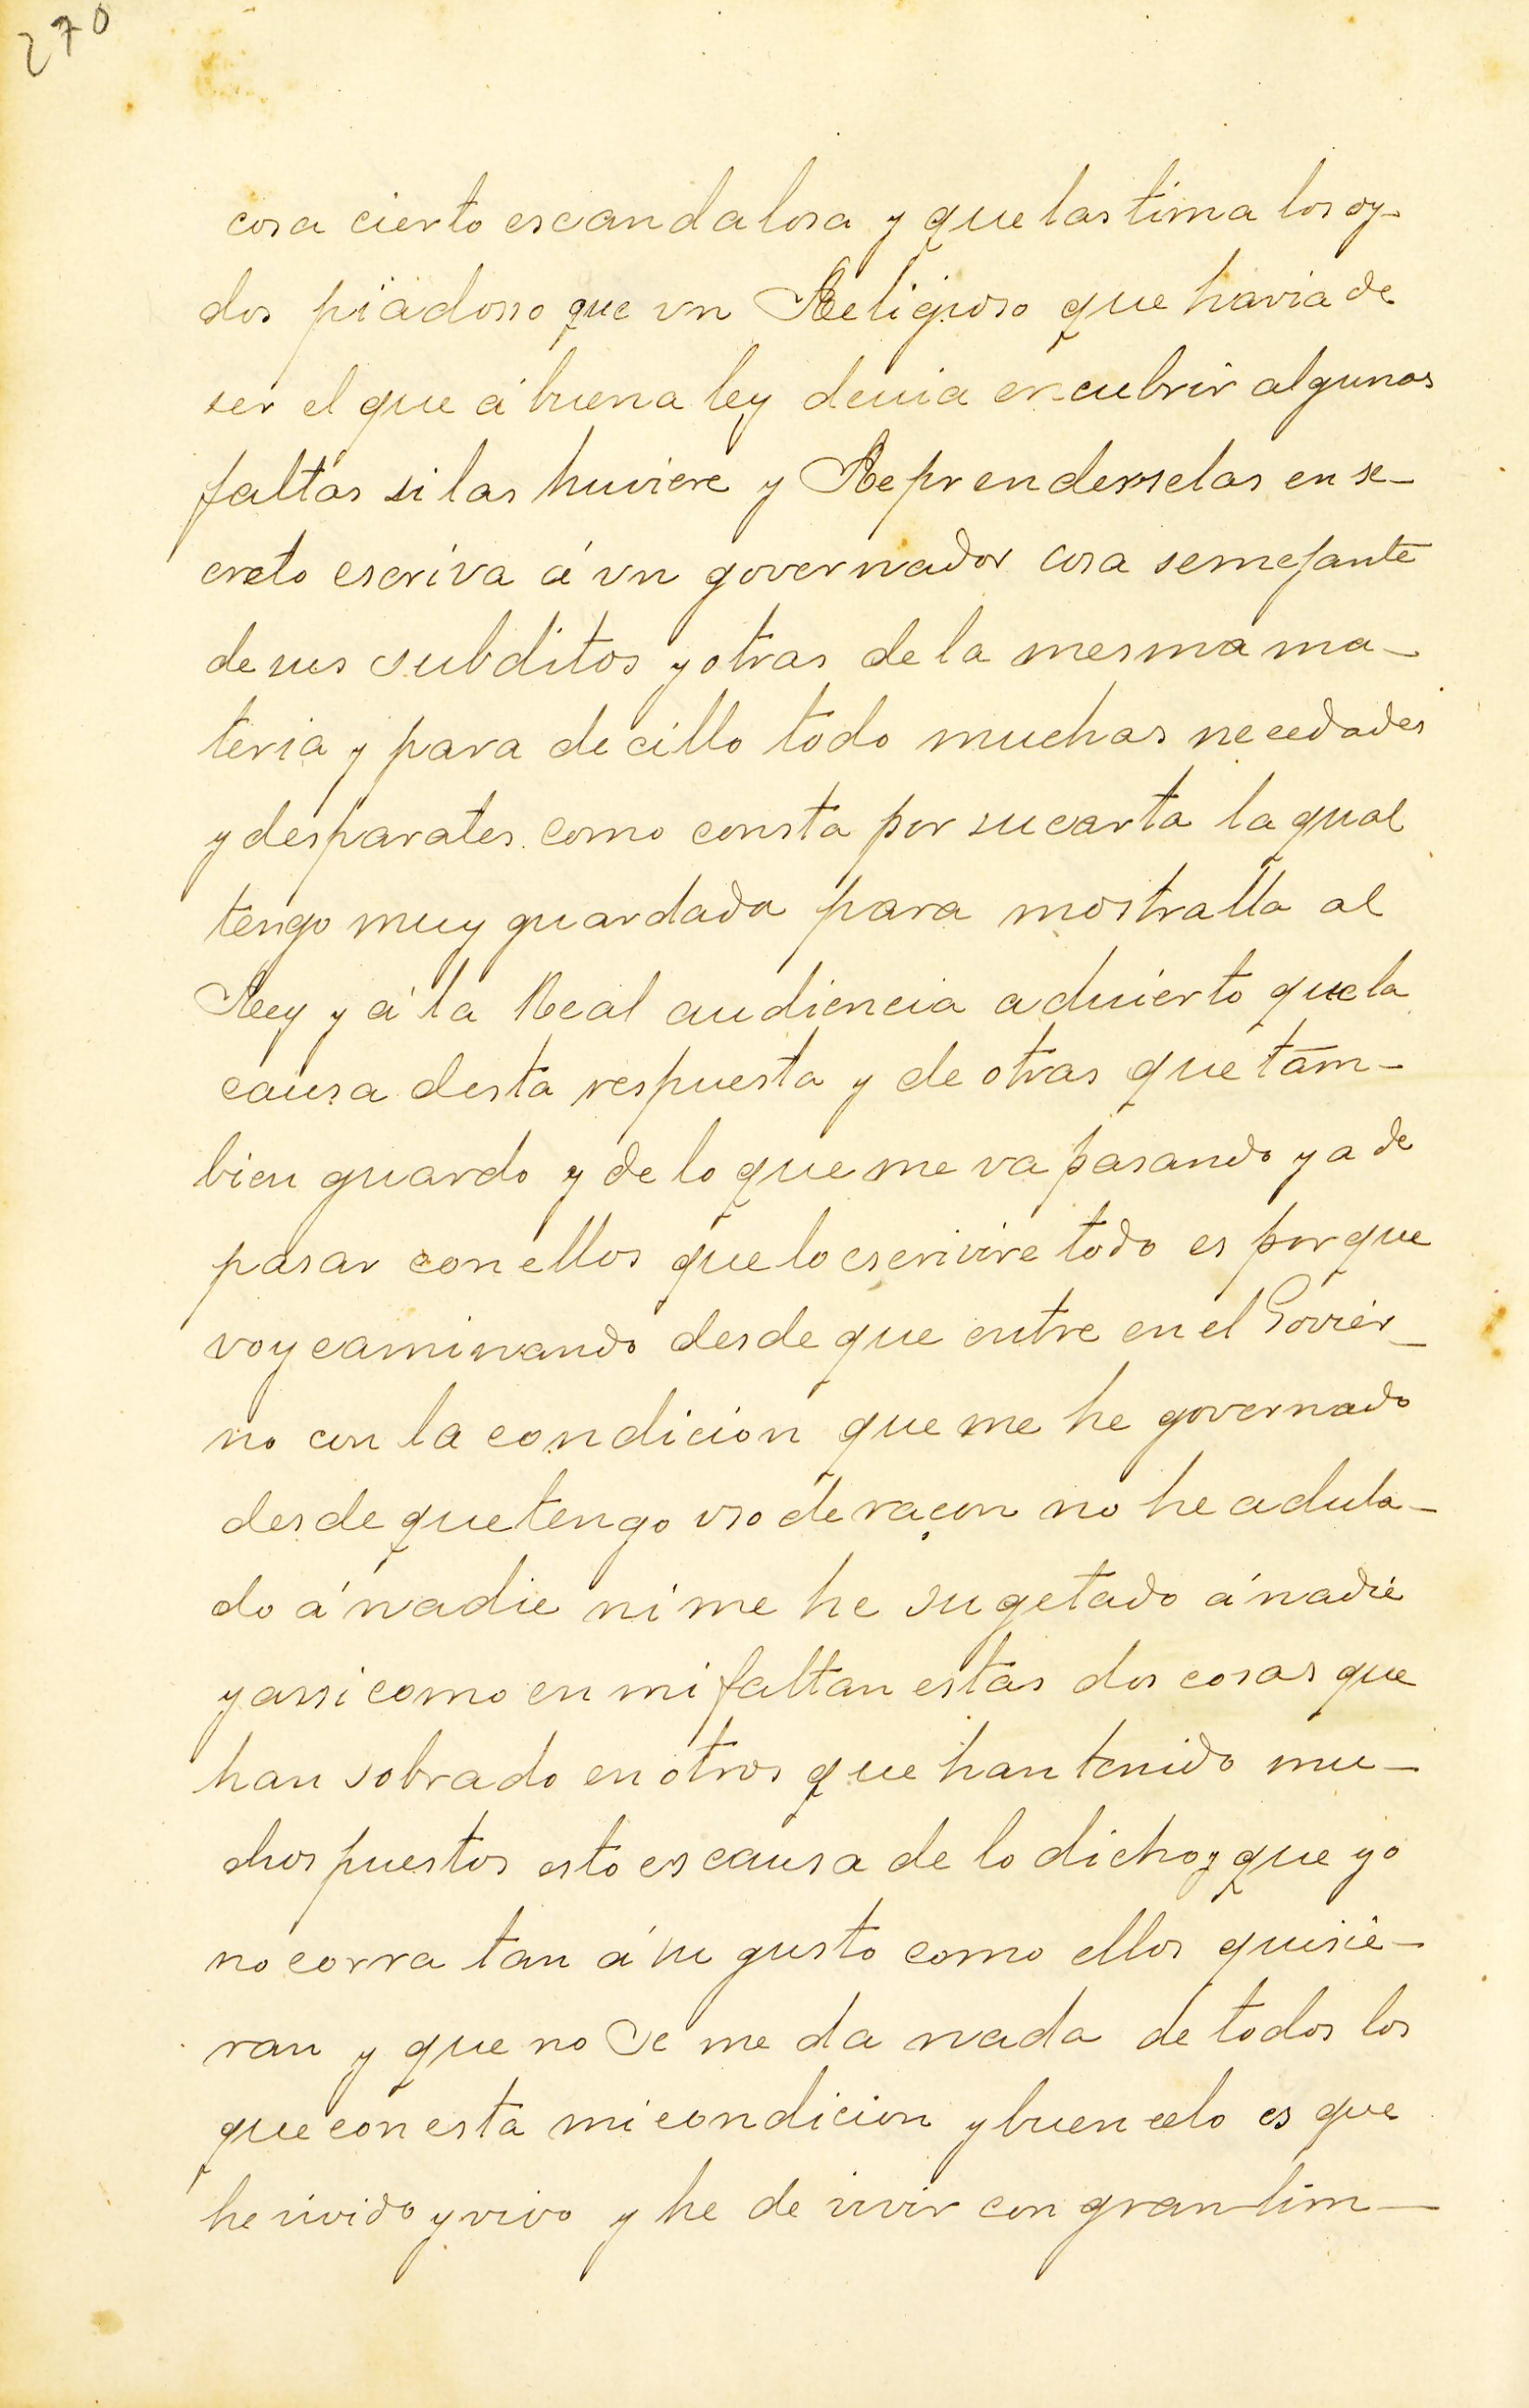 270
cosa cierto escandalosa y que lastima los oy-
dos piadosso que vn Religioso que havia de
ser el que á buena ley deuia encubrir algunas
faltas si las huviere y Reprenderselas en se-
creto escriva á vn governador cosa semejante
de sus subditos y otras de la mesma ma-
teria y para decillo todo muchas necedades
y desparates como consta por su carta la qual
tengo muy guardada para mostralla al
Rey y á la Real audiencia aduierto que la
causa desta respuesta y de otras que tam-
bien guardo y de lo que me va pasando y a de
pasar con ellos que lo escrivire todo es por que
voy caminando desde que entre en el Govier-
no con la condicion que me he governado
desde que tengo vso de raçon no he adula-
do á nadie ni me he sugetado á nadie
y assi como en mi faltan estas dos cosas que
han sobrado en otros que han tenido mu-
chos puestos esto es causa de lo dicho y que yo
no corra tan á su gusto como ellos quisie-
ran y que no Se me da nada de todos los
que con esta mi condicion y buen celo es que
he vivido y vivo y he de vivir con gran lim-